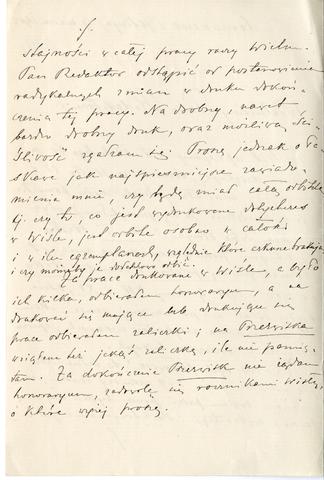 stajności w całej pracy raczy Wielm.
Pan Redaktor odstąpić od postanowienia
radykalnych zmian w druku dokoń-
czenia tej pracy. Na drobny, nawet
bardzo drobny druk, oraz możliwą ści-
śliwość zgadzam się. Proszę jednak o ła-
skawe jak najspieszniejsze zawiado-
mienie mnie, czy będę miał całą odbitkę
tj. czy to, co jest wydrukowane dotychczas
w Wiśle, jest odbite osobno w całości
i w ilu egzemplarzach, względnie które arkusze brakują
i czy możnaby je dodatkowo odbić.
Za prace drukowane w Wiśle, a było
ich kilka, odbierałem honoraryum, a na
drukować się mające lub drukujące się
prace odbierałem zaliczki; na Przezwiska
wziąłem też jakąś zaliczkę, ile nie pamię-
tam. Za dokończenie Przezwisk nie żądam
honoraryum, zadowolę się rocznikami Wisły,
o które wyżej proszę.